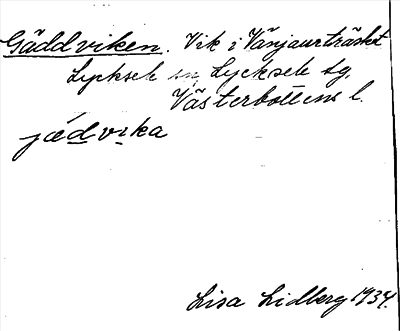 Gäddviken. Vik i Vänjaurträsket
Lycksele sn, Lycksele tg,
Västerbottens l.
jédvika
Lisa Lidberg 1934.